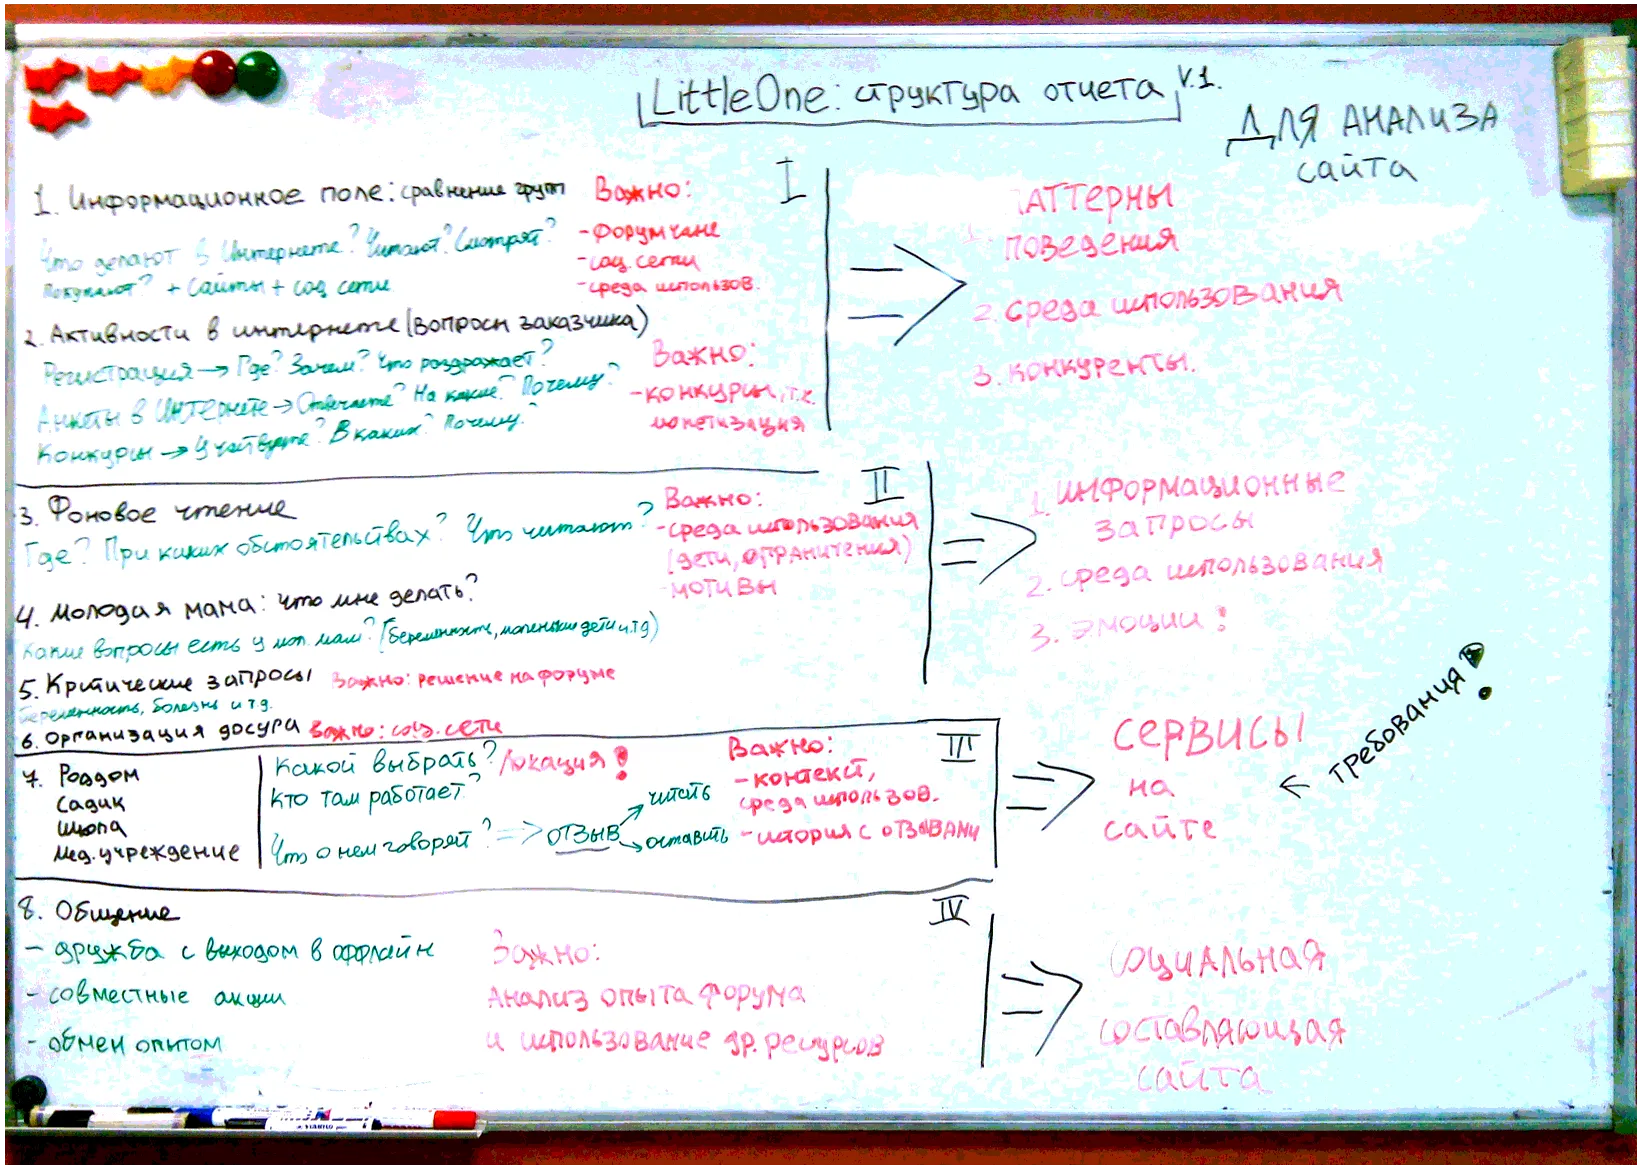 LittleOne: структура отчета v.1.
ДЛЯ АНАЛИЗА
сайта
I
1. Информационное поле: сравнение групп
Что делают в Интернете? Читают? Смотрят?
Покупают? + Сайты + соц сети
Важно:
- форумчане
- соц. сетки
- среда использов.
2. Активности в интернете (вопросы заказчика)
Регистрация → Где? Зачем? Что раздражает?
Анкеты в Интернете → Отвечаете? На какие? Почему?
Конкурсы → Участвуете? В каких? Почему?
Важно:
- конкурсы, т.к.
монетизация
⇒
ПАТТЕРНЫ
1. поведения
2. среда использования
3. конкуренты.
II
3. Фоновое чтение
Где? При каких обстоятельствах? Что читают?
Важно:
- среда использования
(дети, ограничения)
- мотивы
4. Молодая мама: что мне делать?
Какие вопросы есть у мол. мам? (беременность, маленькие дети и тд)
5. Критические запросы Важно: решение на форуме
Беременность, болезнь и тд.
6. Организация досуга Важно: соц. сети
⇒
1. ИНФОРМАЦИОННЫЕ
запросы
2. среда использования
3. эмоции!
III
7. Роддом
Садик
Школа
Мед. учреждение
Какой выбрать? Локация!
Кто там работает?
Что о нем говорят? => ОТЗЫВ
→ читать
→ оставить
Важно:
- контекст,
среда использов.
- история с отзывами
⇒
СЕРВИСЫ
на
сайте
← требования!
IV
8. Общение
- дружба с выходом в оффлайн
- совместные акции
- обмен опытом
Важно:
Анализ опыта форума
и использование др. ресурсов
⇒
СОЦИАЛЬНАЯ
составляющая
сайта